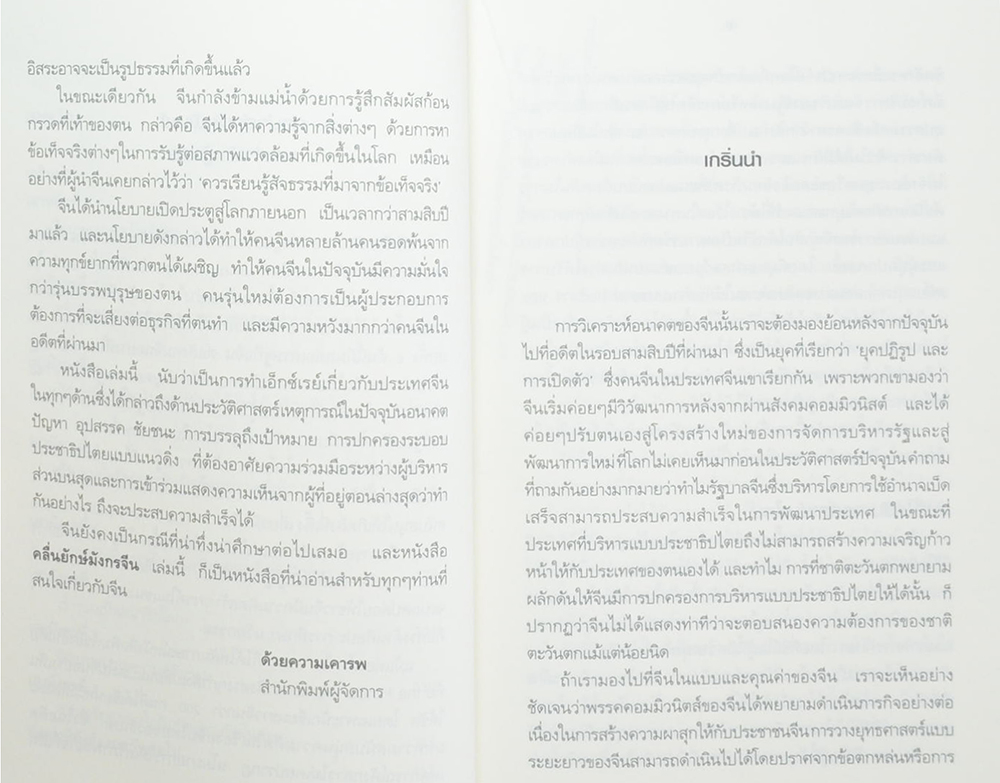 อิสระอาจจะเป็นรูปธรรมที่เกิดขึ้นแล้ว
ในขณะเดียวกัน จีนกำลังข้ามแม่น้ำด้วยการรู้สึกสัมผัสก้อน
กรวดที่เท้าของตน กล่าวคือ จีนได้หาความรู้จากสิ่งต่างๆ ด้วยการหา
ข้อเท็จจริงต่างๆในการรับรู้ต่อสภาพแวดล้อมที่เกิดขึ้นในโลก เหมือน
อย่างที่ผู้นำจีนเคยกล่าวไว้ว่า 'ควรเรียนรู้สัจธรรมที่มาจากข้อเท็จจริง'
จีนได้นำนโยบายเปิดประตูสู่โลกภายนอก เป็นเวลากว่าสามสิบปี
มาแล้ว และนโยบายดังกล่าวได้ทำให้คนจีนหลายล้านคนรอดพ้นจาก
ความทุกข์ยากที่พวกตนได้เผชิญ ทำให้คนจีนในปัจจุบันมีความมั่นใจ
กว่ารุ่นบรรพบุรุษของตน คนรุ่นใหม่ต้องการเป็นผู้ประกอบการ
ต้องการที่จะเสี่ยงต่อธุรกิจที่ตนทำ และมีความหวังมากกว่าคนจีนใน
อดีตที่ผ่านมา
หนังสือเล่มนี้ นับว่าเป็นการทำเอ็กซ์เรย์เกี่ยวกับประเทศจีน
ในทุกๆด้านซึ่งได้กล่าวถึงด้านประวัติศาสตร์เหตุการณ์ในปัจจุบันอนาคต
ปัญหา อุปสรรค ชัยชนะ การบรรลุถึงเป้าหมาย การปกครองระบอบ
ประชาธิปไตยแบบแนวดิ่ง ที่ต้องอาศัยความร่วมมือระหว่างผู้บริหาร
ส่วนบนสุดและการเข้าร่วมแสดงความเห็นจากผู้ที่อยู่ตอนล่างสุดว่าทำ
กันอย่างไร ถึงจะประสบความสำเร็จได้
จีนยังคงเป็นกรณีที่น่าทึ่งน่าศึกษาต่อไปเสมอ และหนังสือ
คลื่นยักษ์มังกรจีน เล่มนี้ ก็เป็นหนังสือที่น่าอ่านสำหรับทุกๆท่านที่
สนใจเกี่ยวกับจีน
ด้วยความเคารพ
สำนักพิมพ์ผู้จัดการ
เกริ่นนำ
การวิเคราะห์อนาคตของจีนนั้นเราจะต้องมองย้อนหลังจากปัจจุบัน
ไปที่อดีตในรอบสามสิบปีที่ผ่านมา ซึ่งเป็นยุคที่เรียกว่า 'ยุคปฏิรูป และ
การเปิดตัว' ซึ่งคนจีนในประเทศจีนเขาเรียกกัน เพราะพวกเขามองว่า
จีนเริ่มค่อยๆมีวิวัฒนาการหลังจากผ่านสังคมคอมมิวนิสต์ และได้
ค่อยๆปรับตนเองสู่โครงสร้างใหม่ของการจัดการบริหารรัฐและสู่
พัฒนาการใหม่ ที่โลกไม่เคยเห็นมาก่อนในประวัติศาสตร์ปัจจุบัน คำถาม
ที่ถามกันอย่างมากมายว่าทำไมรัฐบาลจีนซึ่งบริหารโดยการใช้อำนาจเบ็ด
เสร็จสามารถประสบความสำเร็จในการพัฒนาประเทศ ในขณะที่
ประเทศที่บริหารแบบประชาธิปไตยถึงไม่สามารถสร้างความเจริญก้าว
หน้าให้กับประเทศของตนเองได้ และทำไม การที่ชาติตะวันตกพยายาม
ผลักดันให้จีนมีการปกครองการบริหารแบบประชาธิปไตยให้ได้นั้น ก็
ปรากฏว่าจีนไม่ได้แสดงท่าทีว่าจะตอบสนองความต้องการของชาติ
ตะวันตกแม้แต่น้อยนิด
ถ้าเรามองไปที่จีนในแบบและคุณค่าของจีน เราจะเห็นอย่าง
ชัดเจนว่าพรรคคอมมิวนิตส์ของจีนได้พยายามดำเนินภารกิจอย่างต่อ
เนื่องในการสร้างความผาสุกให้กับประชาชนจีน การวางยุทธศาสตร์แบบ
ระยะยาวของจีนสามารถดำเนินไปได้โดยปราศจากข้อตกหล่นหรือการ